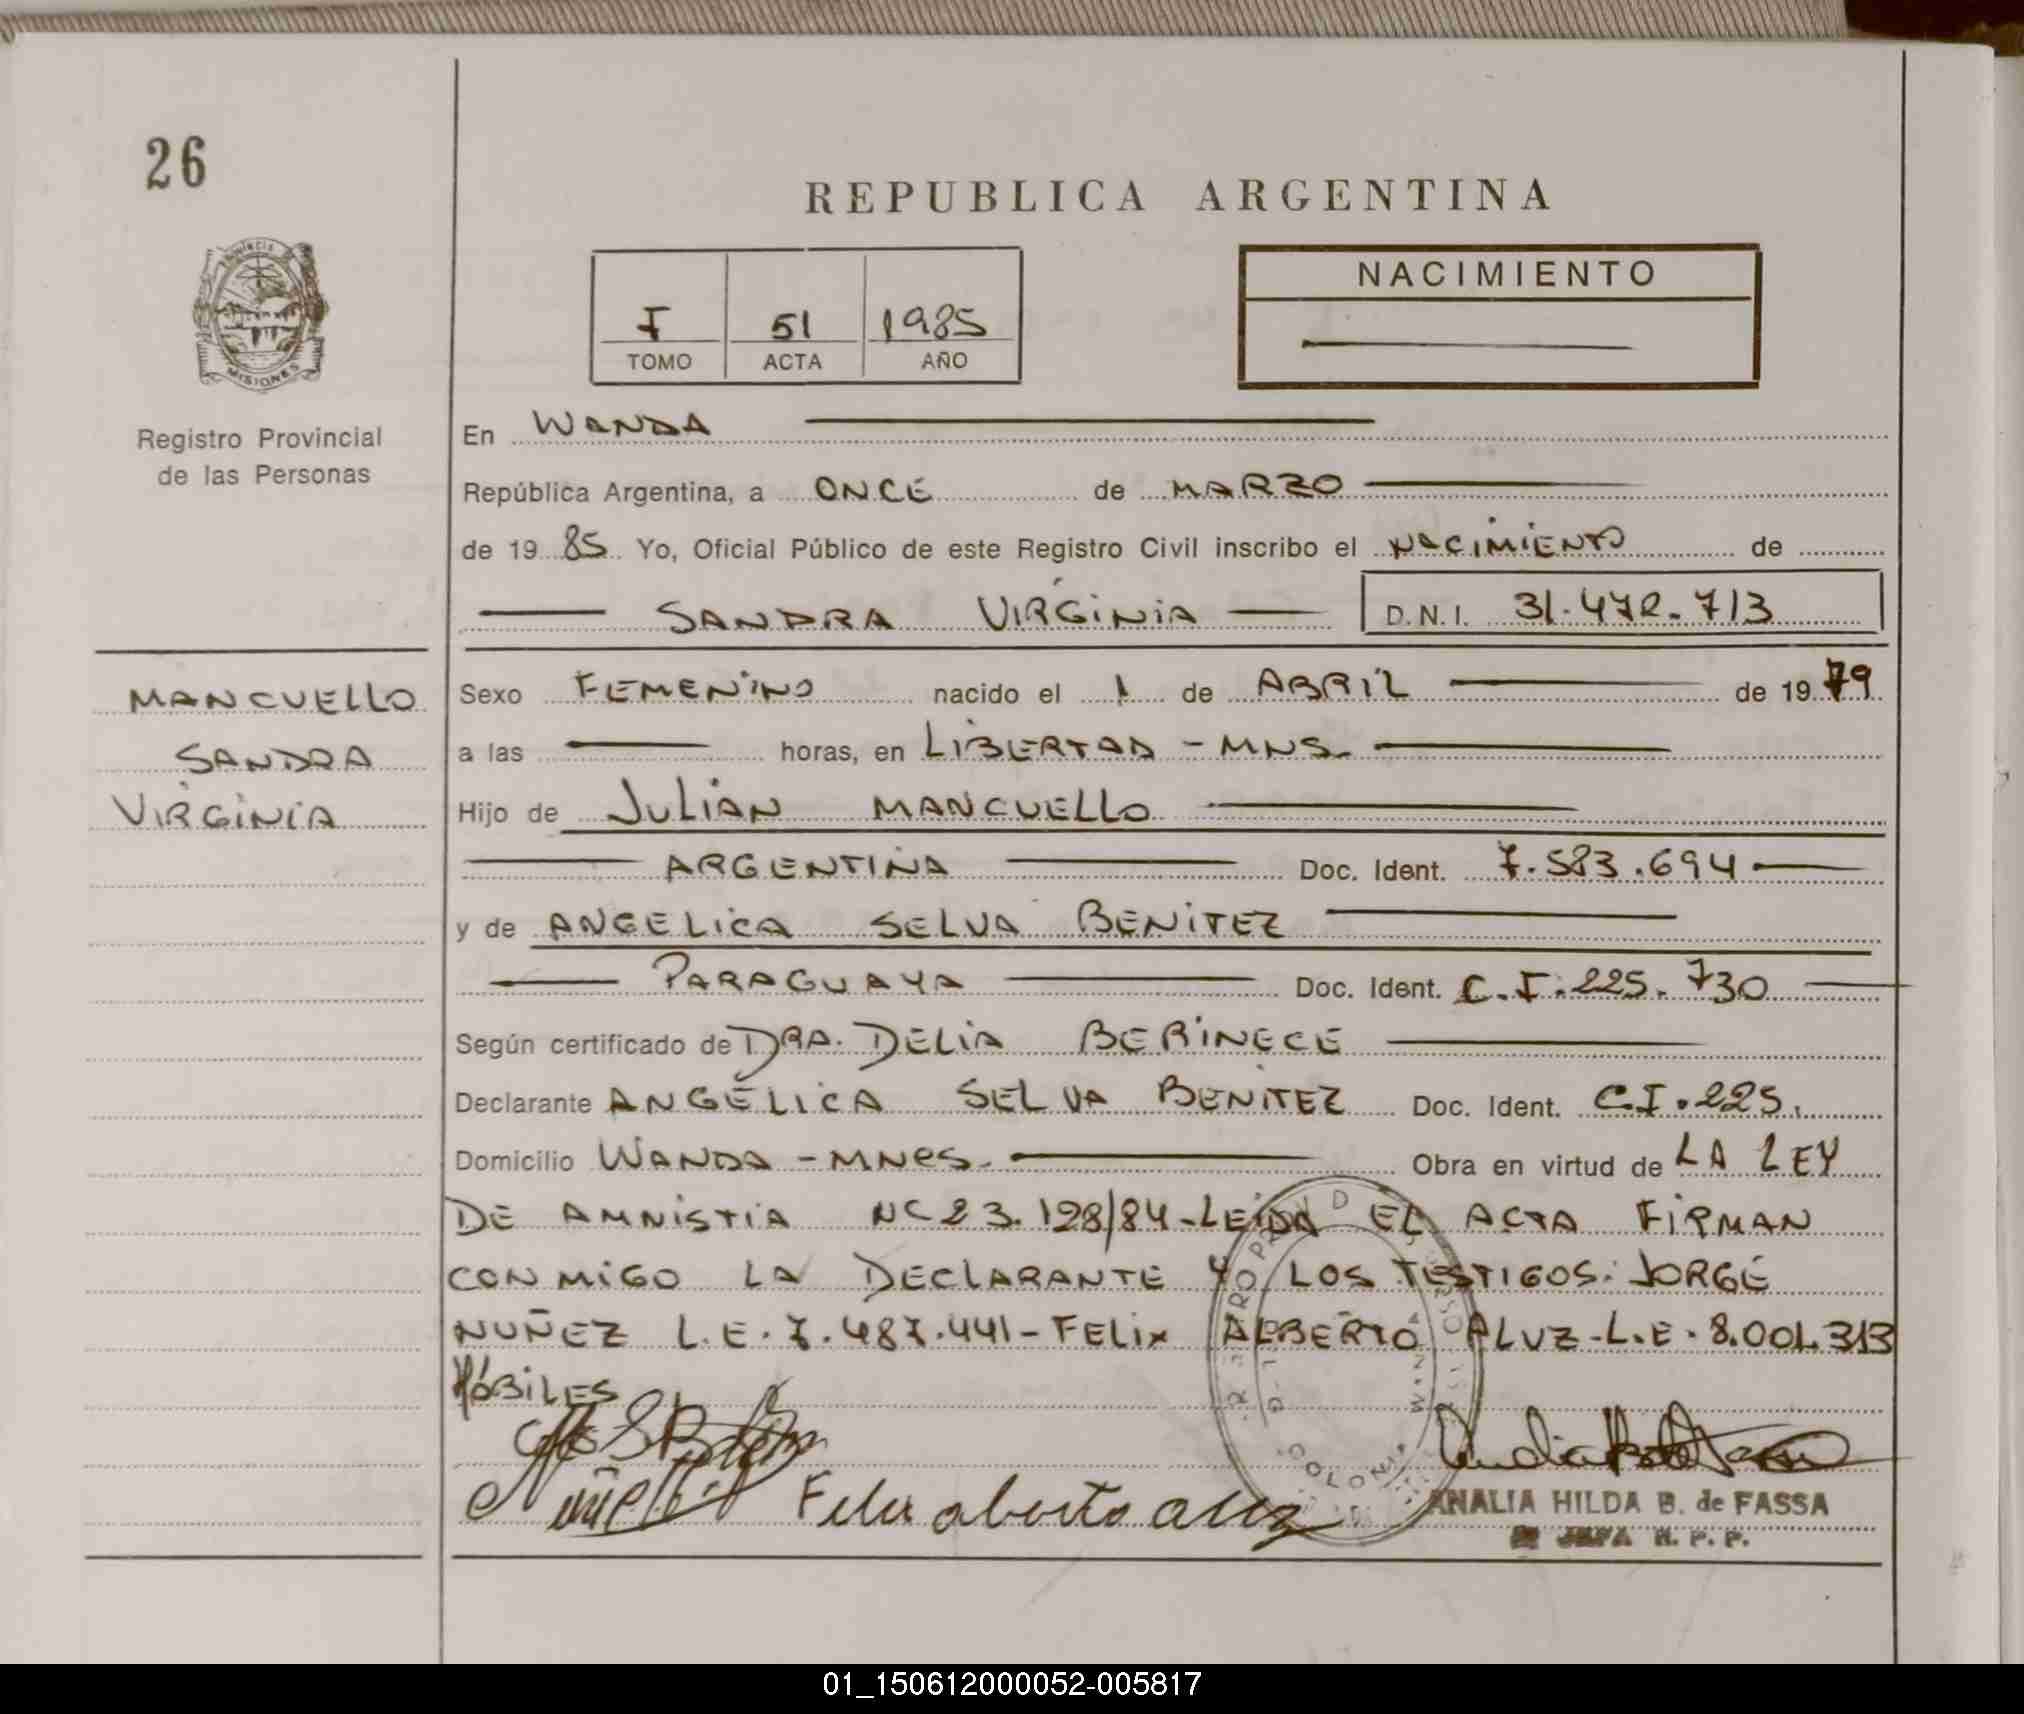 26
REPUBLICA ARGENTINA
NACIMIENTO
I 51 1985
TOMO ACTA AÑO
MISIONES
Registro Provincial
de las Personas
En WANDA
República Argentina, a ONCE de MARZO
de 19 85 Yo, Oficial Público de este Registro Civil inscribo el NACIMIENTO de
SANDRA VIRGINIA D.N.I. 31.472.713
MANCUELLO
SANDRA
VIRGINIA
Sexo FEMENINO nacido el 1 de ABRIL de 19 79
a las horas, en LIBERTAD - MNS.
Hijo de JULIAN MANCUELLO
ARGENTINA Doc. Ident. 7.583.694
y de ANGELICA SELVA BENITEZ
PARAGUAYA Doc. Ident. C.I. 225.730
Según certificado de DRA. DELIA BERINECE
Declarante ANGELICA SELVA BENITEZ Doc. Ident. C.I. 225.
Domicilio WANDA - MNES. Obra en virtud de LA LEY
DE AMNISTIA 23.128/84 - LEIDA EL ACTA FIRMAN
CONMIGO LA DECLARANTE Y LOS TESTIGOS: JORGE
NUÑEZ L.E. 7.487.441 - FELIX ALBERTO ALUZ - L.E. 8.001.313
HÁBILES
Felix alberto aluz
ANALIA HILDA B. de FASSA
JEFA R. P. P.
01_150612000052-005817